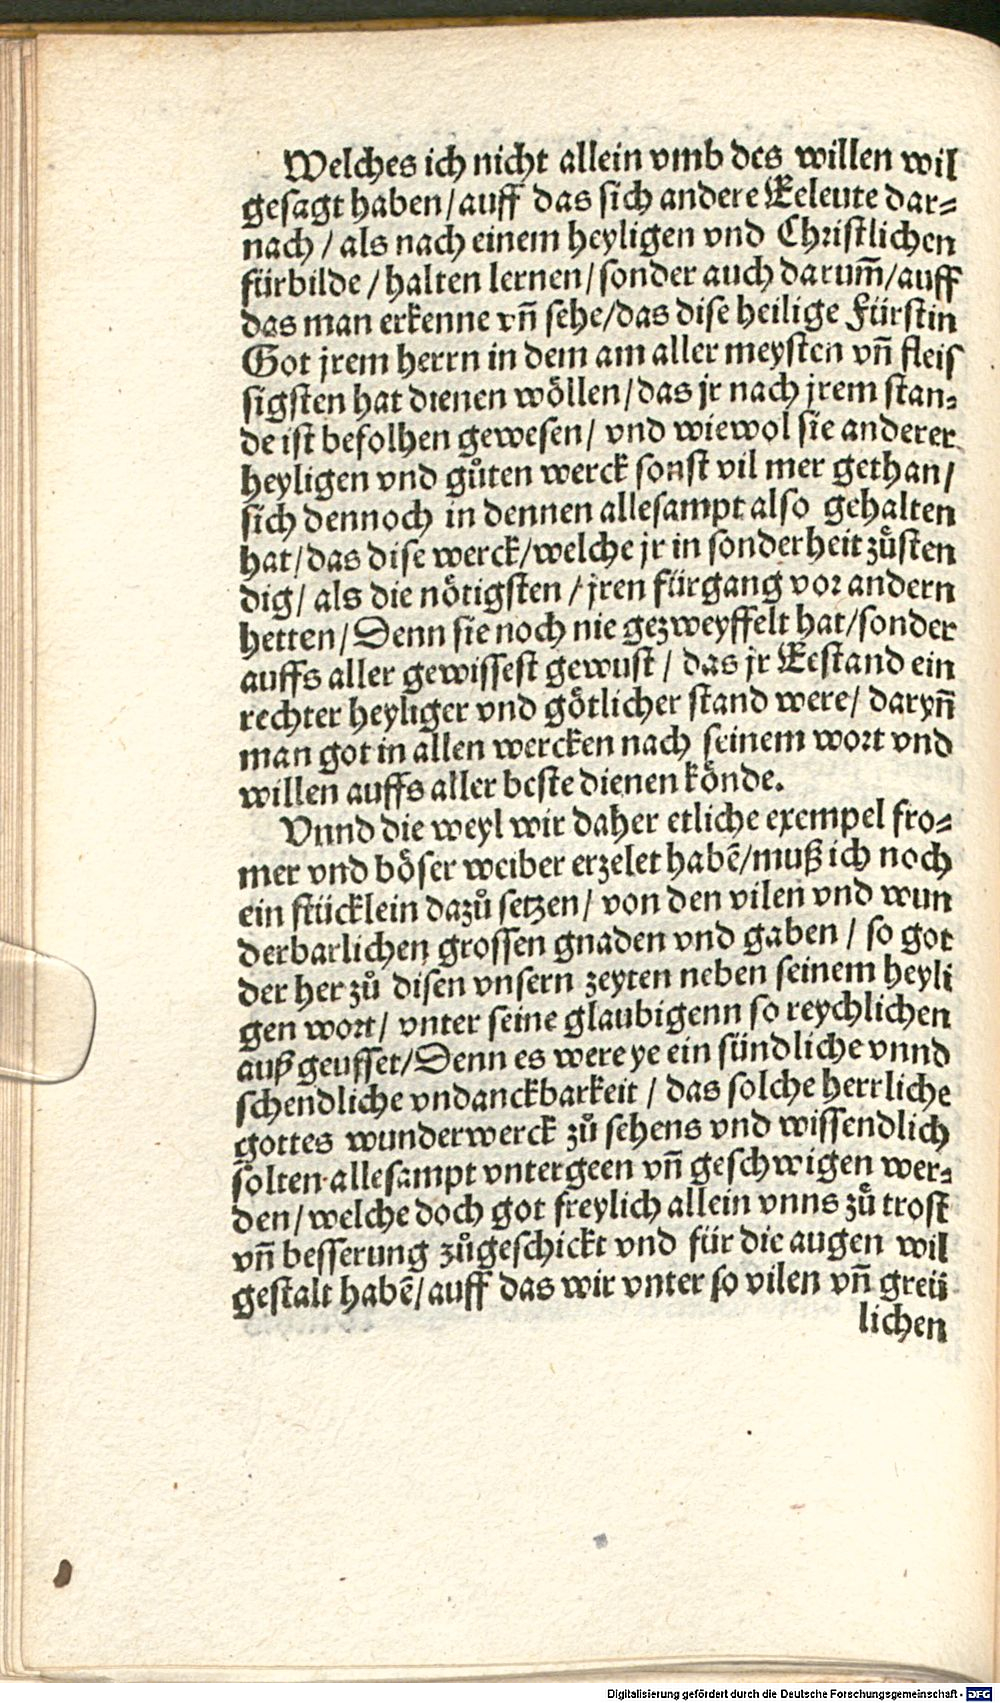 Welches ich nicht allein vmb des willen wil
gesagt haben/auff das sich andere Eeleute dar⸗
nach / als nach einem heyligen vnd Christlichen
fürbilde / halten lernen/sonder auch darum̃/auff
das man erkenne vñ sehe/das dise heilige Fürstin
Got jrem herrn in dem am aller meysten vñ fleis
sigsten hat dienen wöllen/das jr nach jrem stan⸗
de ist befolhen gewesen/ vnd wiewol sie anderer
heyligen vnd gůten werck sonst vil mer gethan/
sich dennoch in dennen allesampt also gehalten
hat/das dise werck/welche jr in sonderheit zůsten
dig/ als die nötigsten / jren fürgang vor andern
hetten/Denn sie noch nie gezweyffelt hat/sonder
auffs aller gewissest gewust / das jr Eestand ein
rechter heyliger vnd götlicher stand were/ daryñ
man got in allen wercken nach seinem wort vnd
willen auffs aller beste dienen könde.
Vnnd die weyl wir daher etliche exempel fro⸗
mer vnd böser weiber erzelet habẽ/muß ich noch
ein stücklein dazů setzen/ von den vilen vnd wun
derbarlichen grossen gnaden vnd gaben / so got
der her zů disen vnsern zeyten neben seinem heyli
gen wort/ vnter seine glaubigenn so reychlichen
auß geusset/Denn es were ye ein sündliche vnnd
schendliche vndanckbarkeit / das solche herrliche
gottes wunderwerck zů sehens vnd wissendlich
solten allesampt vntergeen vñ geschwigen wer⸗
den/welche doch got freylich allein vnns zů trost
vñ besserung zůgeschickt vnd für die augen wil
gestalt habẽ/auff das wir vnter so vilen vñ greü
lichen
Digitalisierung gefördert durch die Deutsche Forschungsgemeinschaft - DFG